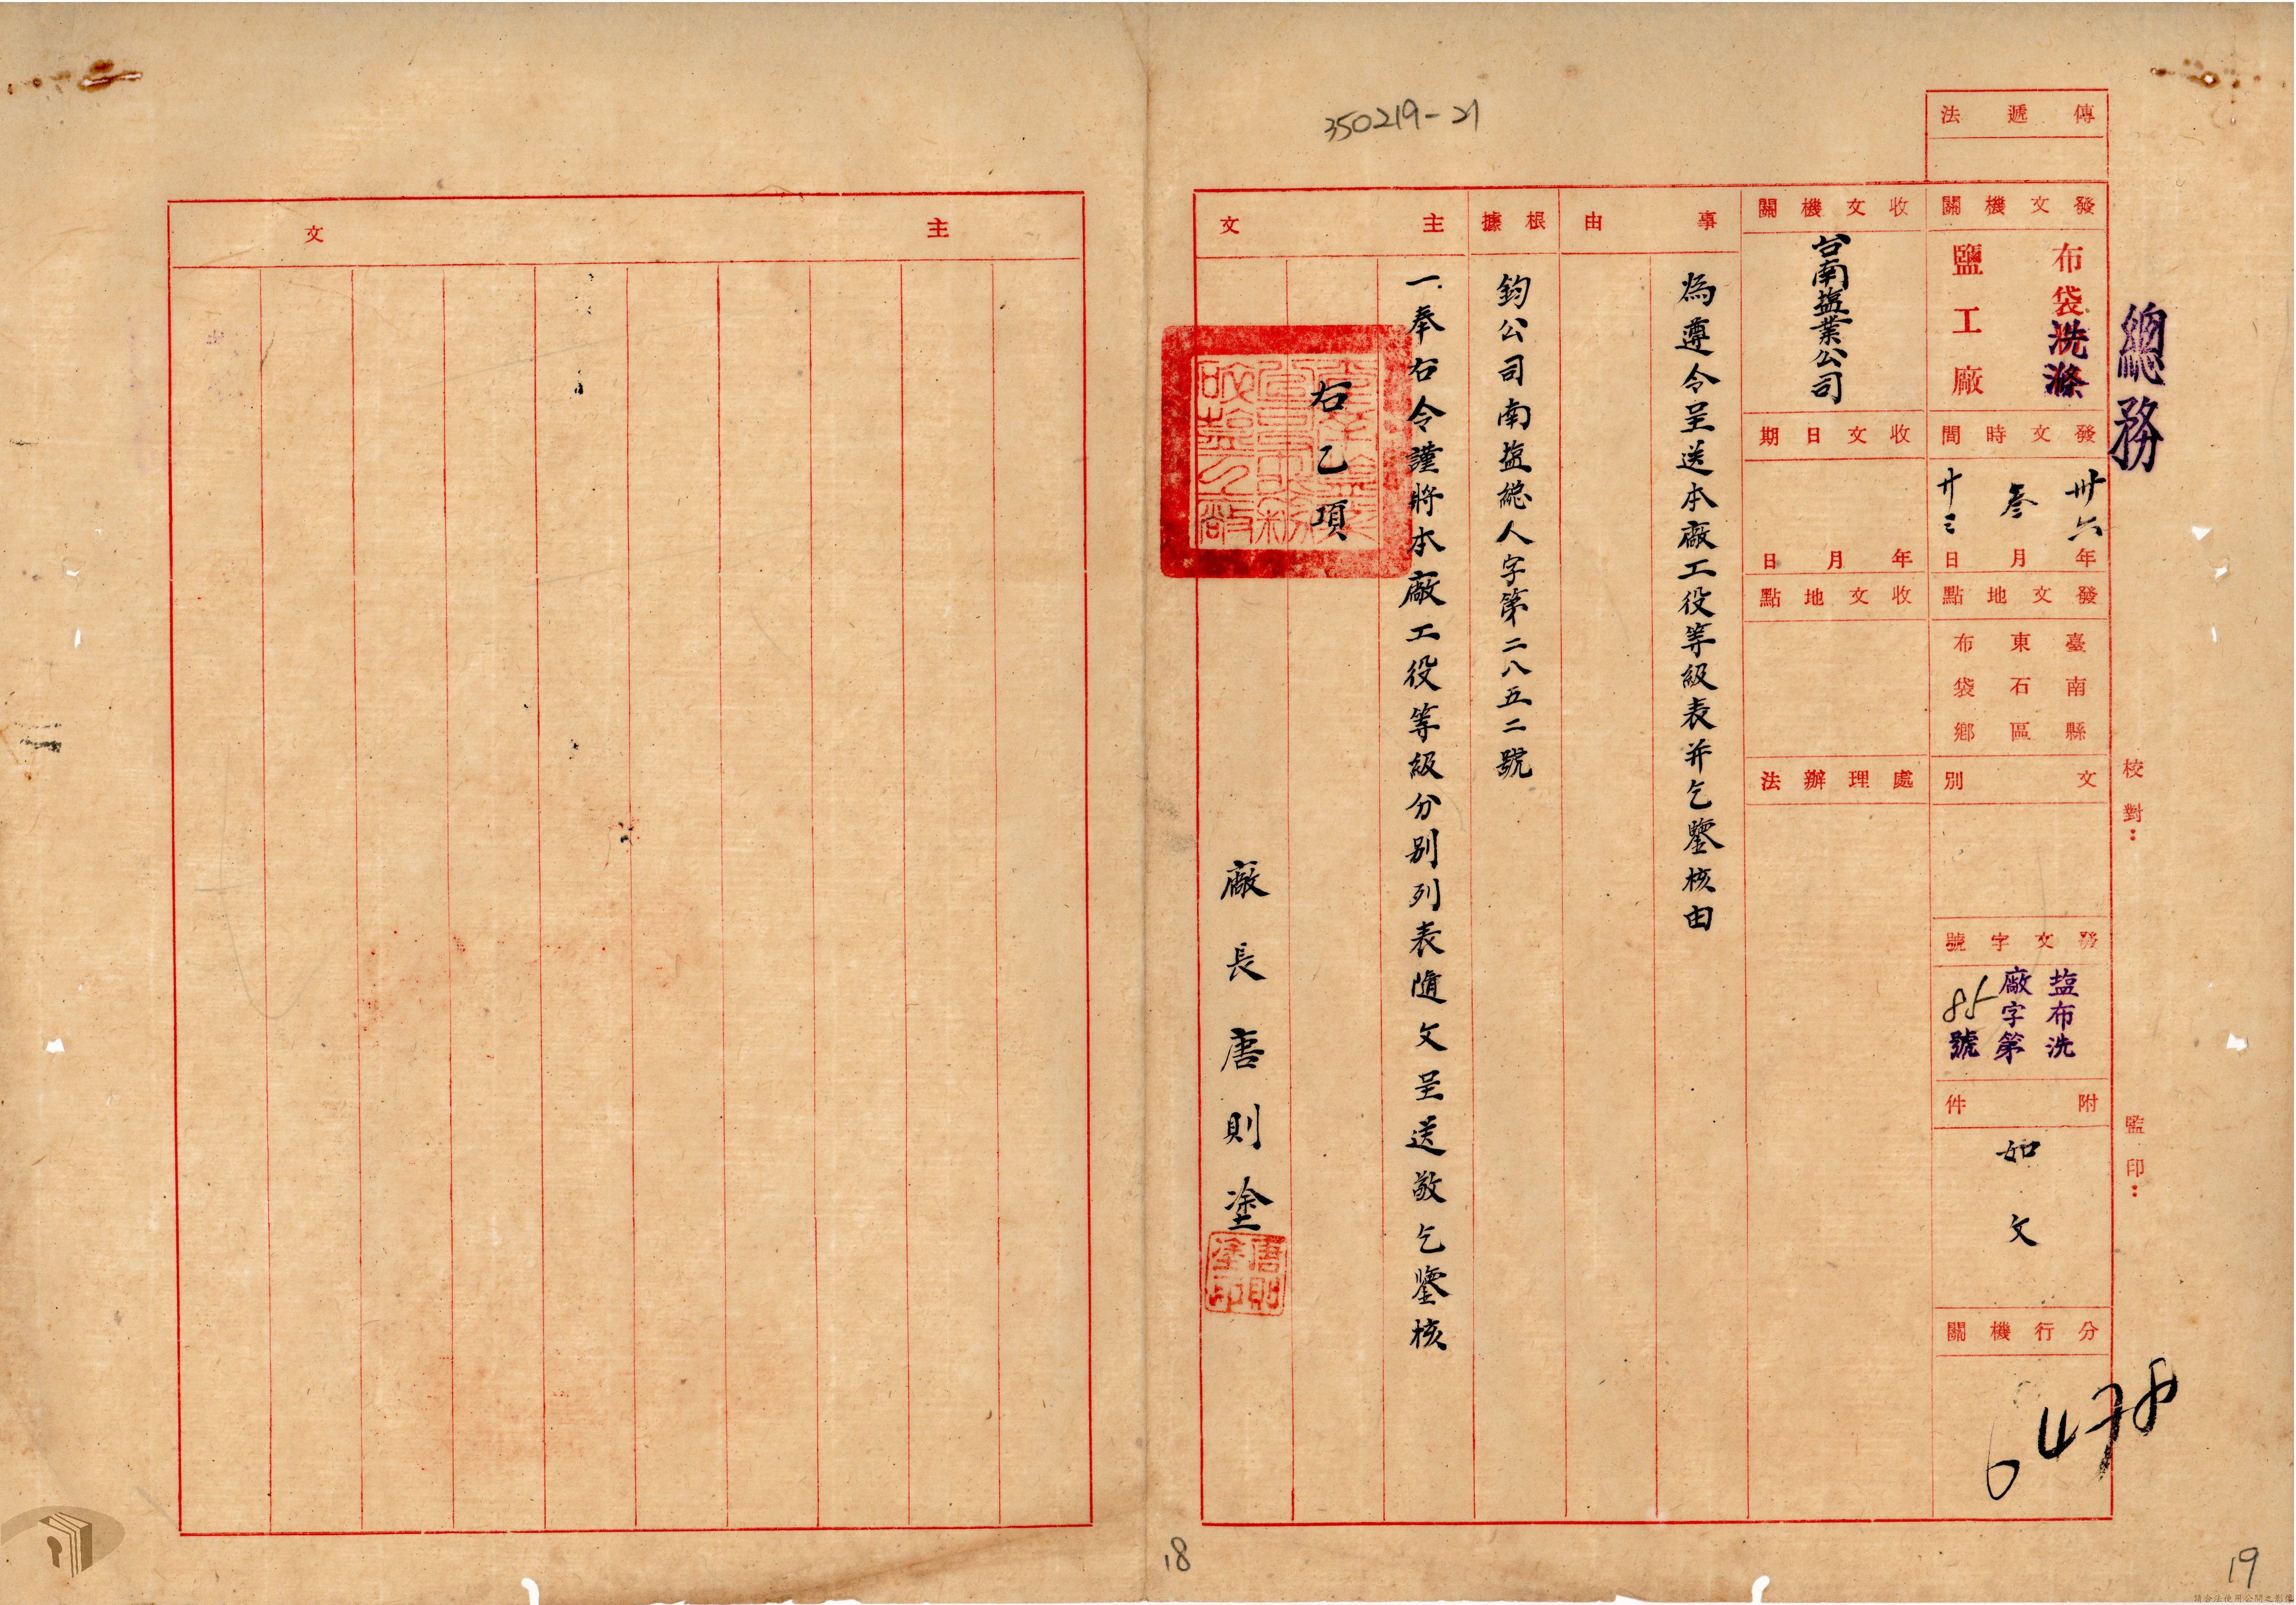 350219-21
總務
傳遞法
發文機關
布袋洗滌
鹽工廠
發文時間
卅六年
叁月
廿三日
發文地點
臺南縣
東石區
布袋鄉
文別
發文字號
塩布洗
廠字第
85號
附件
如文
分行機關
6478
校對：
監印：
收文機關
台南塩業公司
收文日期
年月日
收文地點
處理辦法
事由
為遵令呈送本廠工役等級表并乞鑒核由
根據
鈞公司南塩總人字第二八五二號
主文
一.奉右令謹將本廠工役等級分別列表隨文呈送敬乞鑒核
右乙項
廠長唐則塗
唐則
塗印
主文
18
19
請合法使用公開之影像